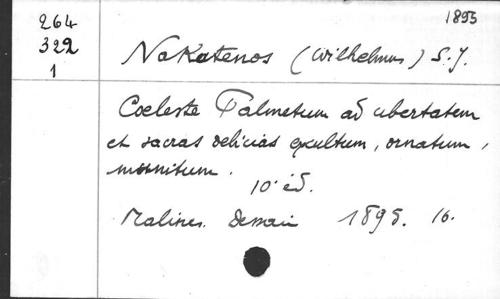 1895
264
322
1
Nakatenos (Wilhelmus) S.J.
Coeleste Palmetum ad ubertatem
et sacras delicias excultum, ornatum,
munitum.
10e éd.
Malines. Dessain 1895. 16.